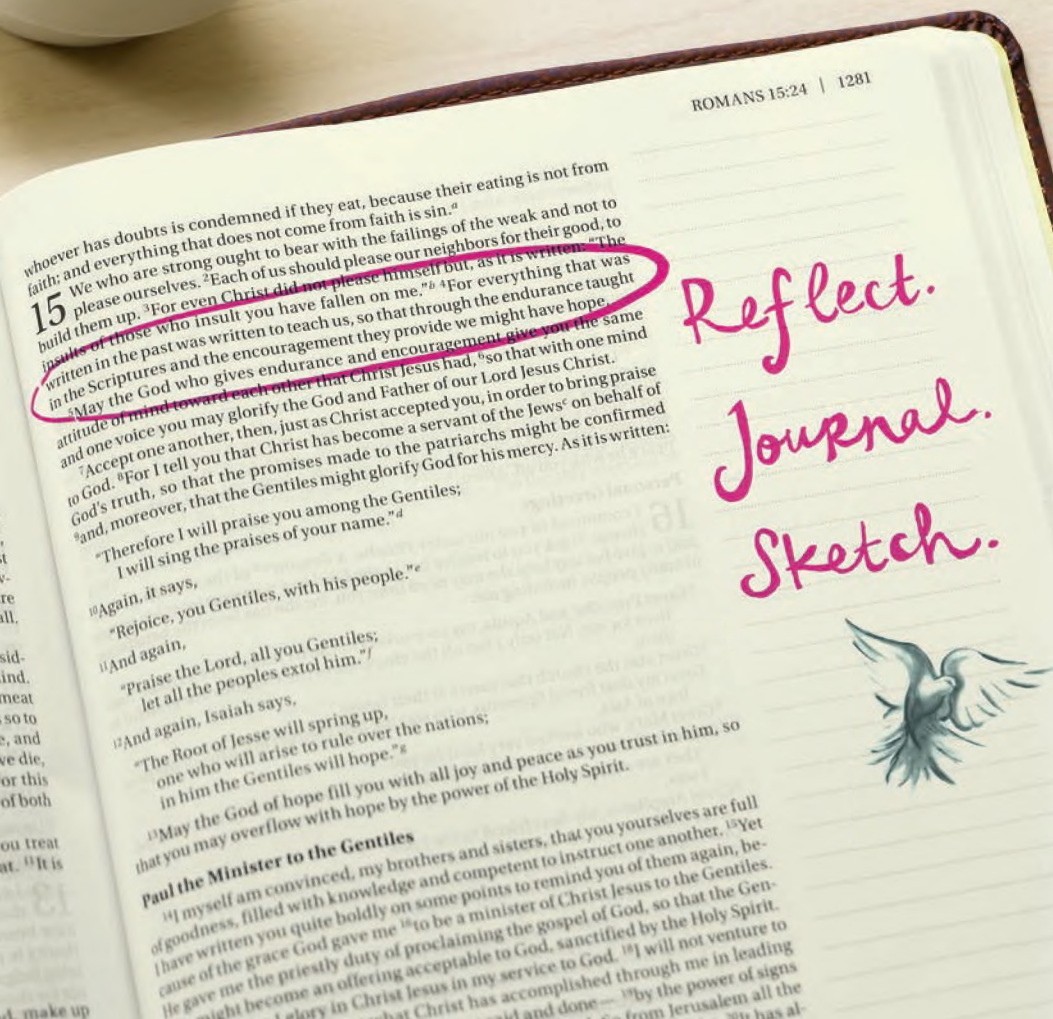 ROMANS 15:24 | 1281
whoever has doubts is condemned if they eat, because their eating is not from
faith; and everything that does not come from faith is sin.a
15 We who are strong ought to bear with the failings of the weak and not to
please ourselves. 2Each of us should please our neighbors for their good, to
build them up. 3For even Christ did not please himself but, as it is written: “The
insults of those who insult you have fallen on me.”b 4For everything that was
written in the past was written to teach us, so that through the endurance taught
in the Scriptures and the encouragement they provide we might have hope.
5May the God who gives endurance and encouragement give you the same
attitude of mind toward each other that Christ Jesus had, 6so that with one mind
and one voice you may glorify the God and Father of our Lord Jesus Christ.
7Accept one another, then, just as Christ accepted you, in order to bring praise
to God. 8For I tell you that Christ has become a servant of the Jewsc on behalf of
God’s truth, so that the promises made to the patriarchs might be confirmed
9and, moreover, that the Gentiles might glorify God for his mercy. As it is written:
“Therefore I will praise you among the Gentiles;
I will sing the praises of your name.”d
10Again, it says,
“Rejoice, you Gentiles, with his people.”e
11And again,
“Praise the Lord, all you Gentiles;
let all the peoples extol him.”f
12And again, Isaiah says,
“The Root of Jesse will spring up,
one who will arise to rule over the nations;
in him the Gentiles will hope.”g
13May the God of hope fill you with all joy and peace as you trust in him, so
that you may overflow with hope by the power of the Holy Spirit.
Paul the Minister to the Gentiles
14I myself am convinced, my brothers and sisters, that you yourselves are full
of goodness, filled with knowledge and competent to instruct one another. 15Yet
I have written you quite boldly on some points to remind you of them again, be-
cause of the grace God gave me 16to be a minister of Christ Jesus to the Gentiles.
He gave me the priestly duty of proclaiming the gospel of God, so that the Gen-
might become an offering acceptable to God, sanctified by the Holy Spirit.
glory in Christ Jesus in my service to God. 18I will not venture to
what Christ has accomplished through me in leading
said and done— 19by the power of signs
from Jerusalem all the
20It has al-
Reflect.
Journal.
Sketch.
re
all.
sid-
ind.
meat
so to
e, and
ve die,
or this
of both
ou treat
at. 11It is
make up